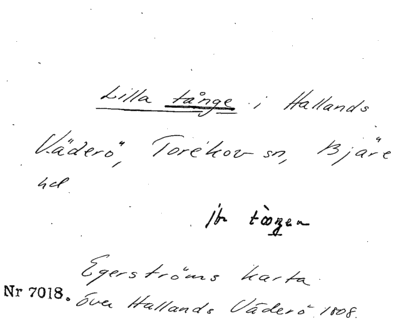 Lilla tånge i Hallands
Väderö, Torekov sn, Bjäre
hd
Egerströms karta
Nr 7018. över Hallands Väderö 1808.